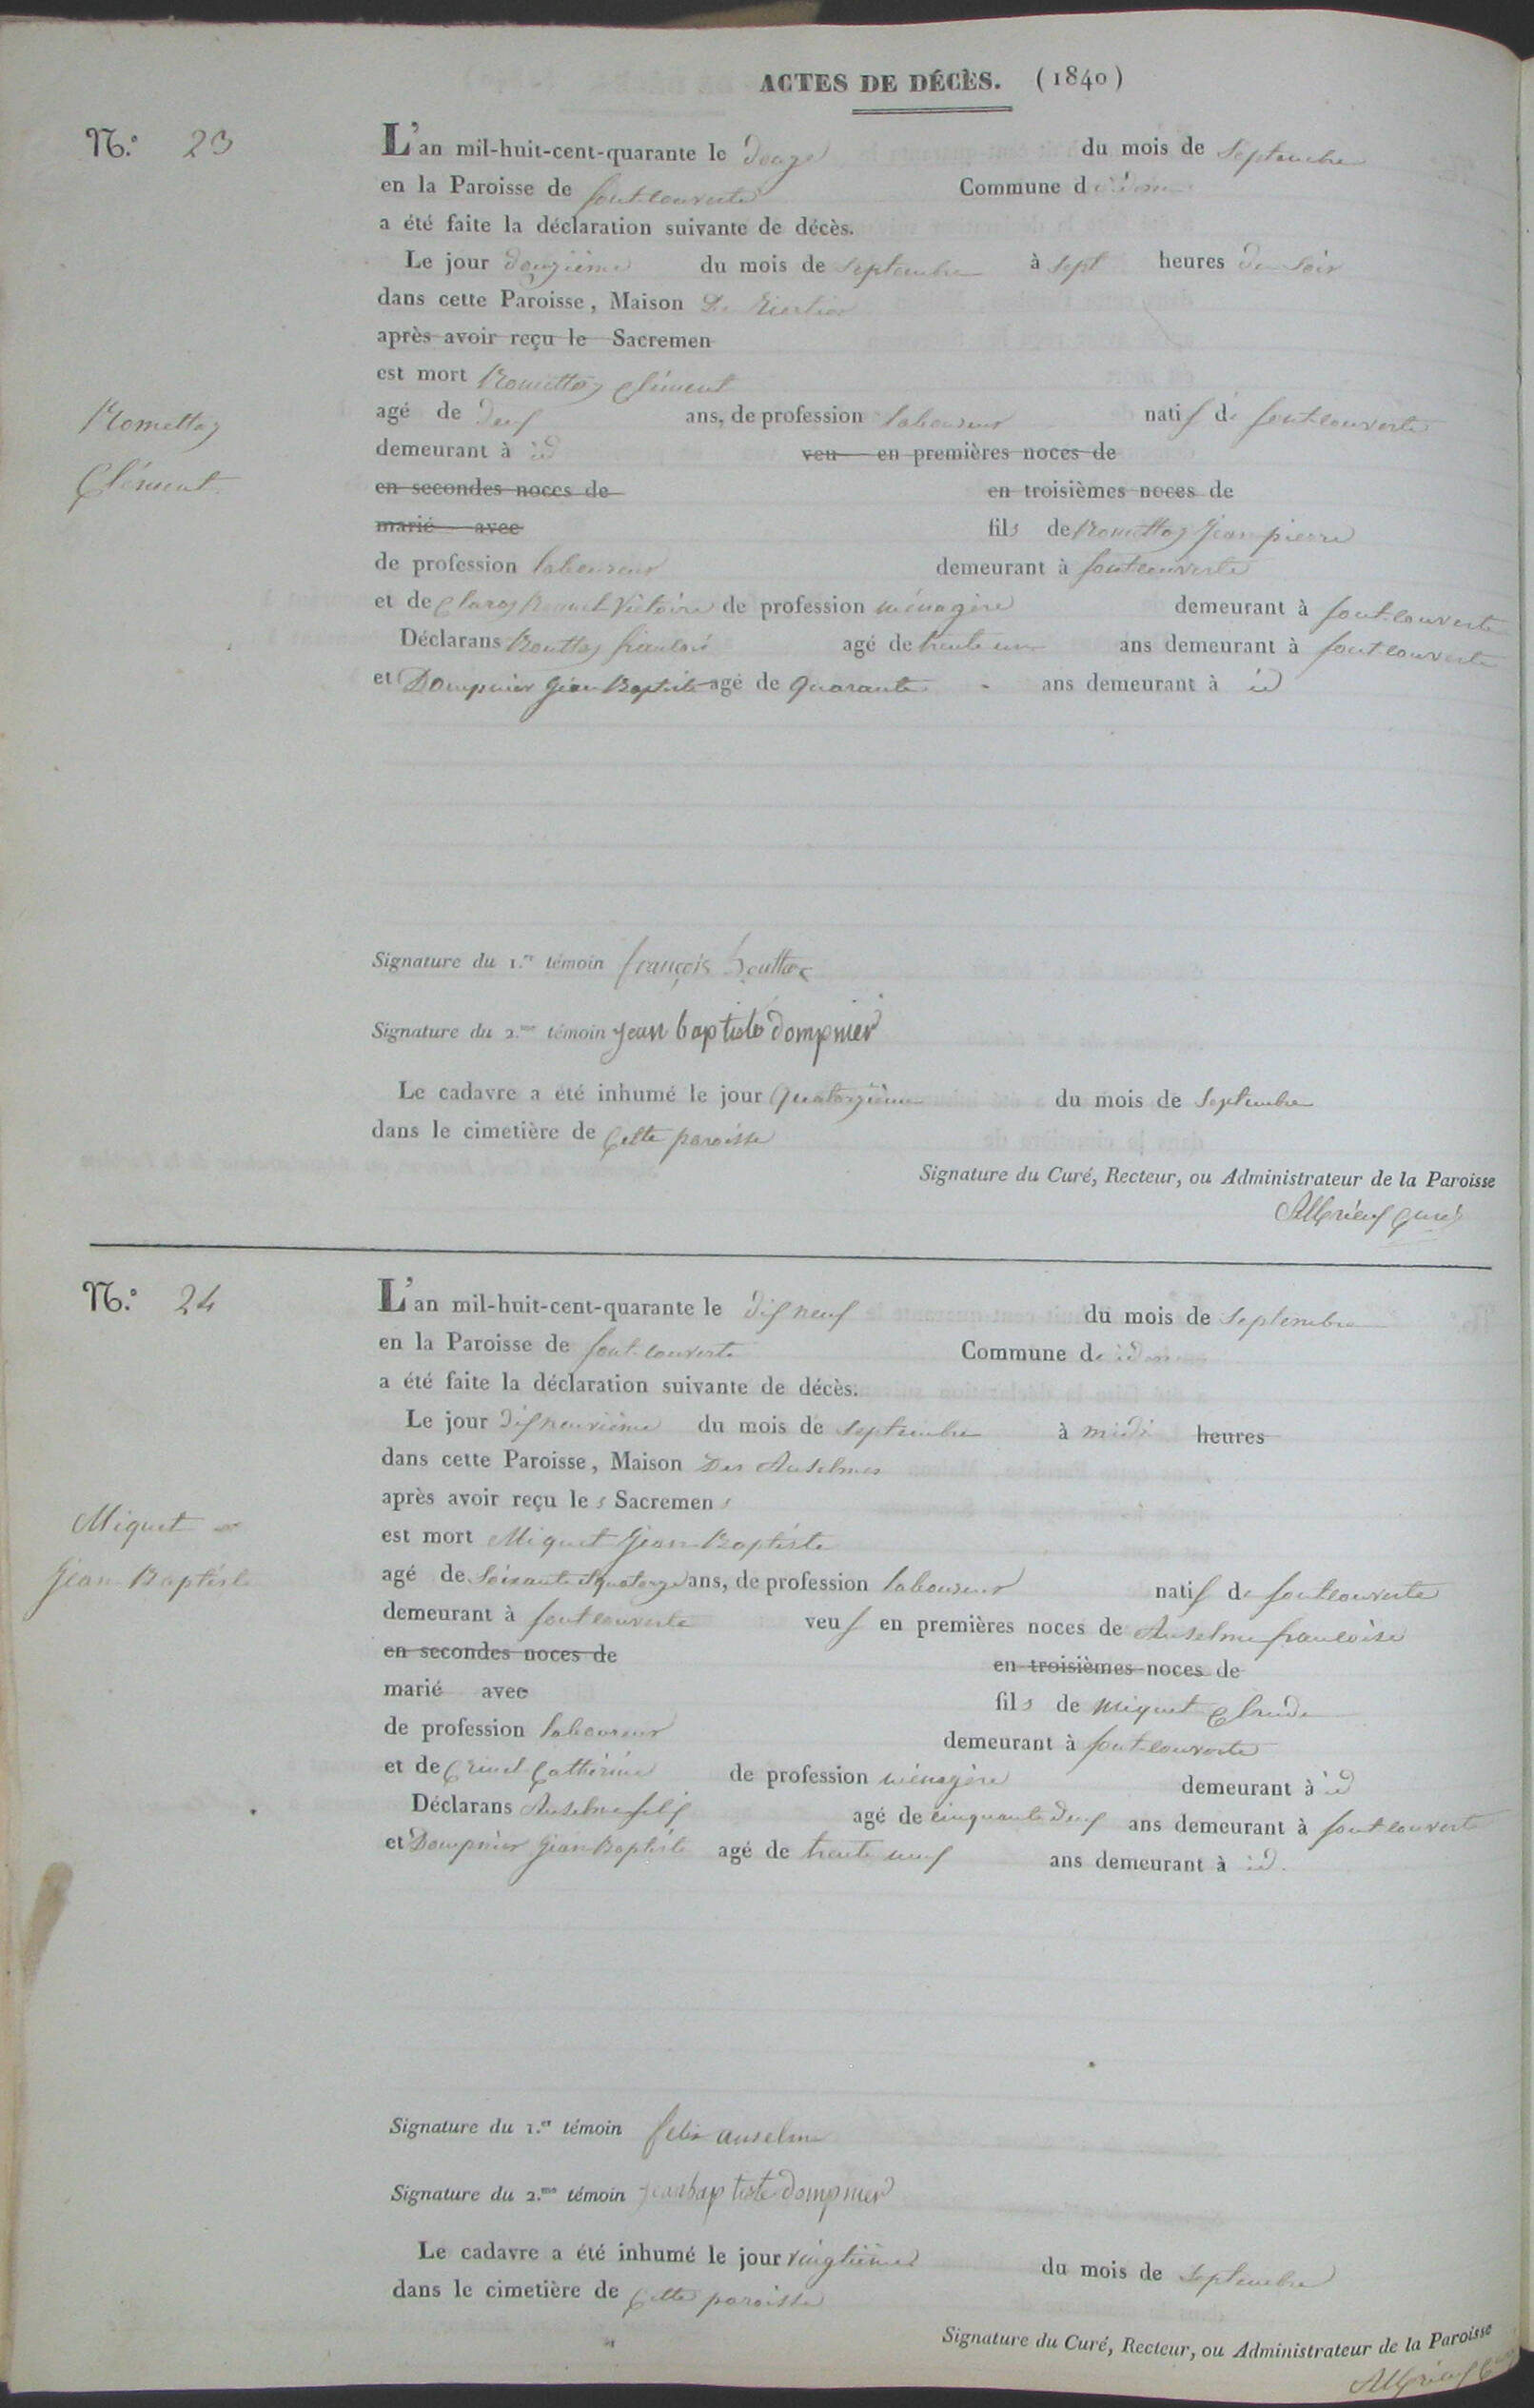 ACTES DE DÉCÈS. (1840)
N.° 23
L'an mil-huit-cent-quarante le douze du mois de Septembre
en la Paroisse de fontcouverte Commune d idem
a été faite la déclaration suivante de décès.
Le jour douzième du mois de septembre à sept heures du soir
dans cette Paroisse, Maison Du
après avoir reçu le Sacremen
est mort Romettaz Clément
Romettaz
agé de deuf ans, de profession laboureur natif de fontcouverte
demeurant à id veu en premières noces de
Clément
en secondes noces de en troisièmes noces de
marié avec fils de Romettaz Jean pierre
de profession laboureur demeurant à fontcouverte
et de Victoire de profession ménagère demeurant à fontcouverte
Déclarans Bouttaz françois agé de trente un ans demeurant à fontcouverte
et Dompnier Jean Baptiste agé de quarante ans demeurant à id
Signature du 1.er témoin françois bouttaz
Signature du 2.me témoin jean baptiste dompnier
Le cadavre a été inhumé le jour quatorzième du mois de Septembre
dans le cimetière de Cette paroisse
Signature du Curé, Recteur, ou Administrateur de la Paroisse
Albrieux Curé
N.° 24
L'an mil-huit-cent-quarante le dif neuf du mois de Septembre
en la Paroisse de fontcouverte Commune de idem
a été faite la déclaration suivante de décès.
Le jour difneuvième du mois de septembre à midi heures
dans cette Paroisse, Maison Des Anselmes
après avoir reçu les Sacremens
Miquet
est mort Miquet Jean Baptiste
Jean Baptiste
agé de Soixante et quatorze ans, de profession laboureur natif de fontcouverte
demeurant à fontcouverte veuf en premières noces de Anselme françoise
en secondes noces de en troisièmes noces de
marié avec fils de Miquet Claude
de profession laboureur demeurant à fontcouverte
et de Catherine de profession ménagère demeurant à id
Déclarans Anselme felif agé de cinquante deuf ans demeurant à fontcouverte
et Dompnier Jean Baptiste agé de trente neuf ans demeurant à id.
Signature du 1.er témoin felix anselme
Signature du 2.me témoin jean baptiste dompnier
Le cadavre a été inhumé le jour vingtième du mois de septembre
dans le cimetière de Cette paroisse
Signature du Curé, Recteur, ou Administrateur de la Paroisse
Albrieux Curé